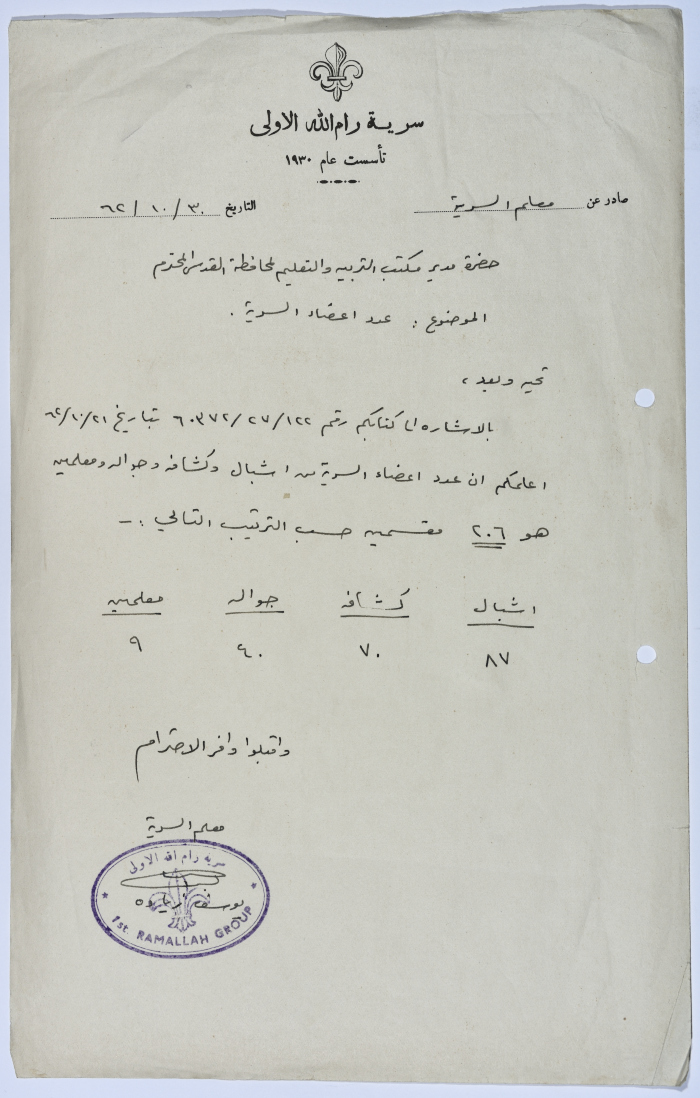 سرية رام الله الاولى
تأسست عام ١٩٣٠
صادر عن معلم السرية التاريخ ٣٠/١٠/٦٢
حضرة مدير مكتب التربيه والتعليم لمحافظة القدس المحترم
الموضوع : عدد اعضاء السرية .
تحيه وبعد ،
بالاشاره الى كتابكم رقم ١٢٢/٢٧/٦٠٣٧٢ بتاريخ ٦٢/١٠/٢١
اعلمكم ان عدد اعضاء السرية من اشبال وكشافه وجواله ومعلمين
هو ٢٠٦ مقسمين حسب الترتيب التالي :-
اشبال كشافه جواله معلمين
٨٧ ٧٠ ٤٠ ٩
واقبلوا وافر الاحترام
معلم السرية
سرية رام الله الاولى
يوسف زياده
1st. RAMALLAH GROUP